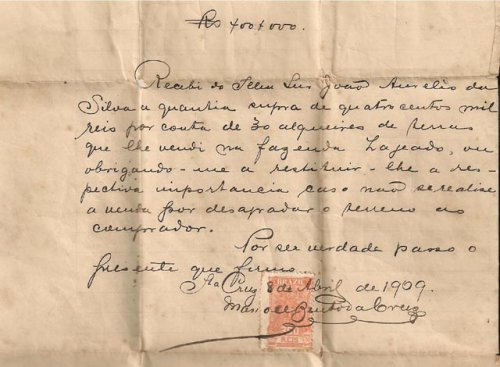 Rs 400$000.
Recebi do Illmo Snr João Aurelio da
Silva a quantia supra de quatrocentos mil
reis por conta de 30 alqueires de terras
que lhe vendi na fazenda Lageado, ou
obrigando-me a restituir-lhe a res-
pectiva importancia caso não se realise
a venda por desagradar o terreno ao
comprador.
Por ser verdade passo o
presente que firmo
Sta Cruz 8 de Abril de 1909.
da Cruz
REIS